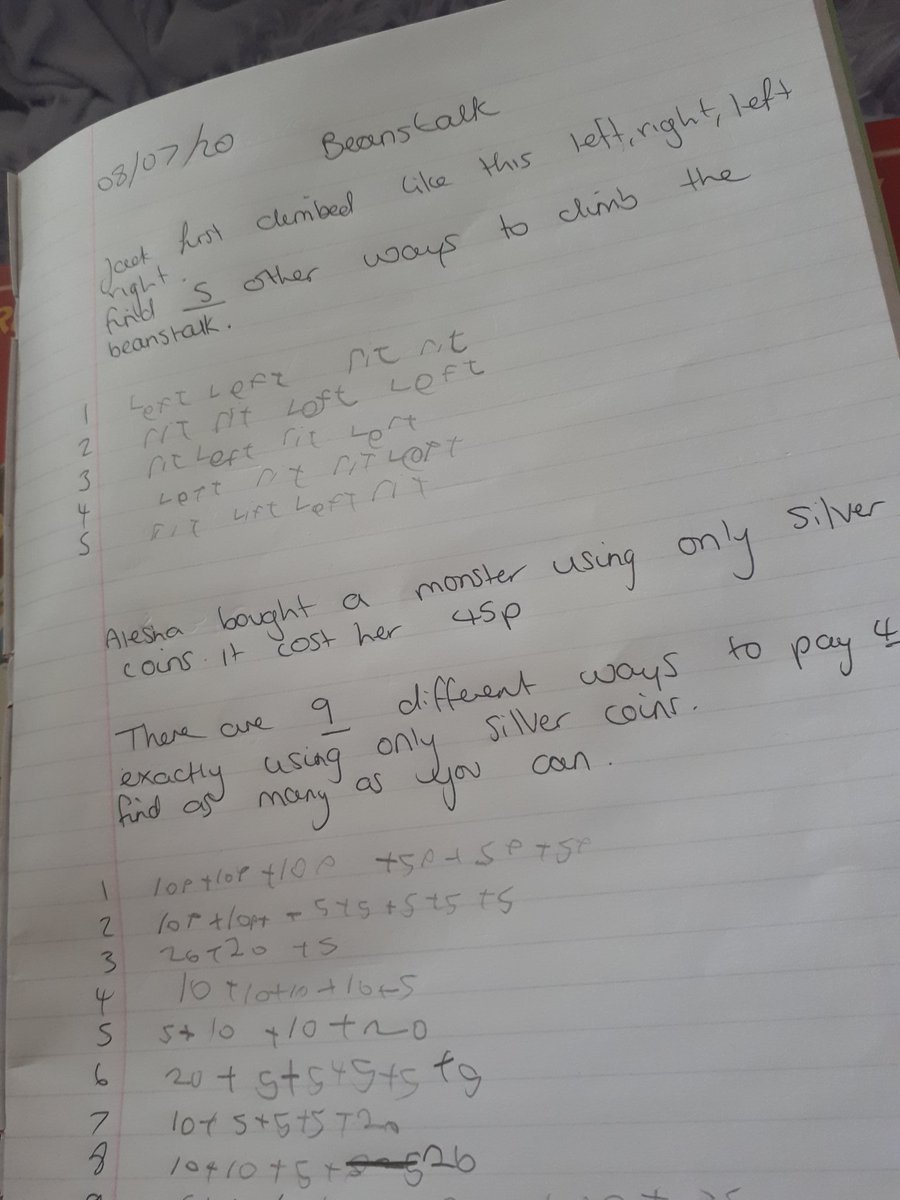 08/07/20 Beanstalk
Jack first climbed like this left, right, left
right.
find 5 other ways to climb the
beanstalk.
1 Left Left rit rit
2 rit rit Left Left
3 rit Left rit Left
4 Left rit rit Left
5 rit Lift Left rit
Alesha bought a monster using only silver
coins. it cost her 45p
There are 9 different ways to pay 4
exactly using only silver coins.
find as many as you can.
1 10p+10p+10p +5p+5p+5p
2 10p+10p+ - 5+5+5+5+5
3 20+20+5
4 10+10+10+10+5
5 5+10+10+20
6 20+5+5+5+5+5
7 10+5+5+5+20
8 10+10+5+ 20